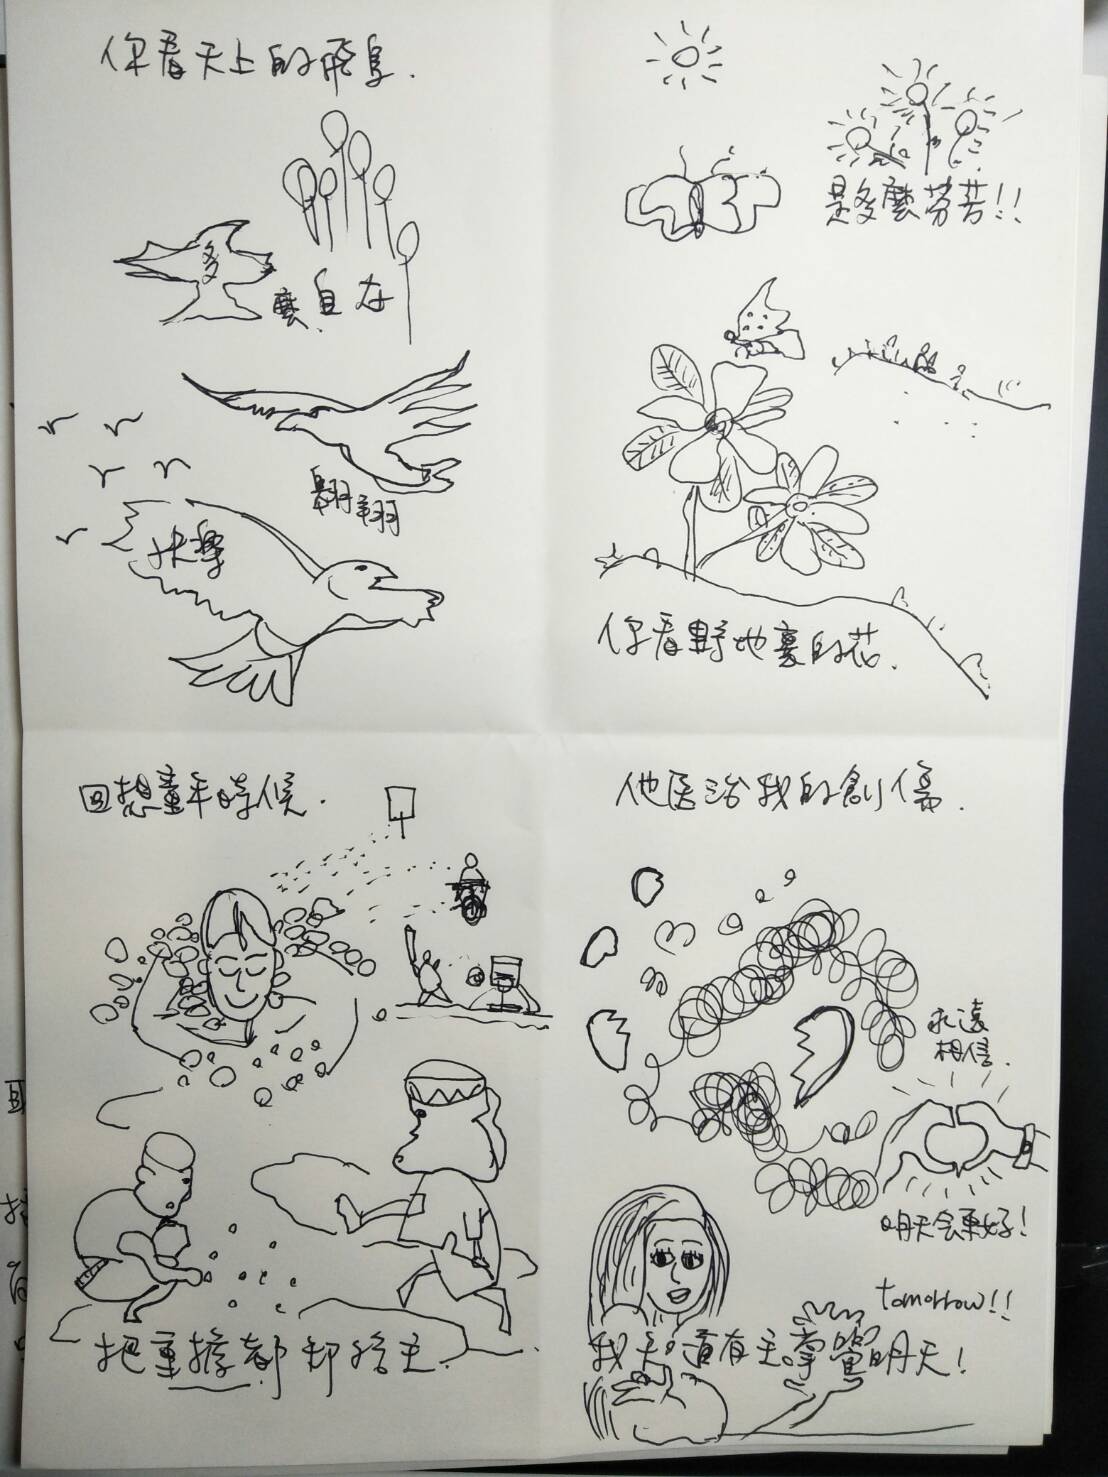 你看天上的飛鳥.
多
麼自在
翱翔
快樂
是多麼勞苦!!
你看野地裏的花.
回想童年時候.
把重擔都卸給主.
他医治我的創傷.
永遠
相信.
明天会更好!
tomorrow!!
我知道有主掌管明天!